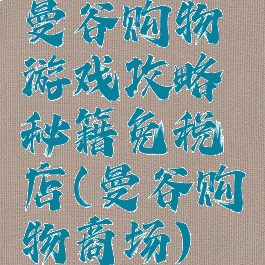 曼谷购物
游戏攻略
秘籍免税
店(曼谷购
物商场)